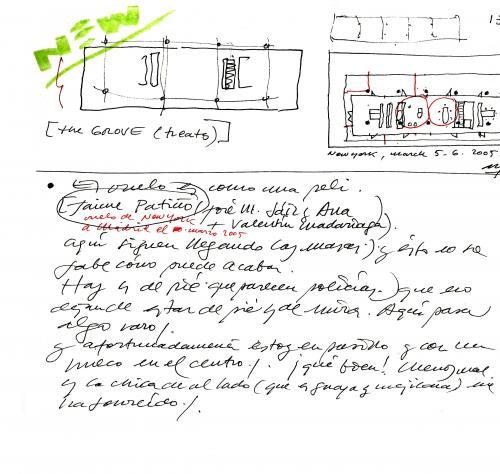 NEW
13
[the GROVE (treats)]
New York, march 5-6. 2005
• El vuelo es como una peli.
[Jaime Patiño] José M. Sáiz, Ana
vuelo de New York
+ Valentín Madariaga).
a Madrid el marzo 2005
aquí siguen llegando y ésto no se
sabe cómo puede acabar.
Hay de pié que parecen policías) que no
dejan de estar de pié y de mirar. Aquí pasa
algo raro/.
y afortunadamente estoy en pasillo y con un
hueco en el centro/. ¡qué bien! menos mal
y la chica de al lado (que es guapa y mejicana) me
ha sonreído/.